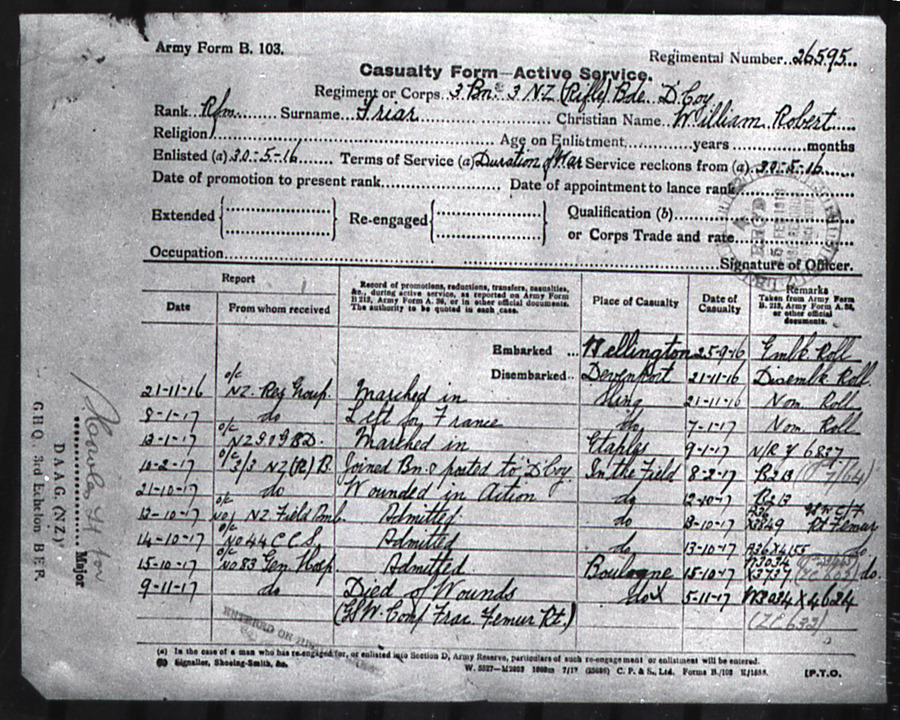 Army Form B. 103.
Regimental Number..26595..
Casualty Form—Active Service.
Regiment or Corps 3 Bn. 3 N.Z. (Rifle) Bde. D Coy
Rank Rfm Surname Friar Christian Name William Robert
Religion Age on Enlistment years months
Enlisted (a) 30-5-16 Terms of Service (a) Duration of War Service reckons from (a) 30-5-16
Date of promotion to present rank Date of appointment to lance rank
Extended Re-engaged Qualification (b)
or Corps Trade and rate
Occupation Signature of Officer.
Report
Date From whom received Record of promotions, reductions, transfers, casualties, &c., during active service, as reported on Army Form B 213, Army Form A. 36, or in other official documents. The authority to be quoted in each case. Place of Casualty Date of Casualty Remarks Taken from Army Form B. 213, Army Form A. 36, or other official documents.
Embarked ... Wellington 25-9-16 Embk Roll
Disembarked Devonport 21-11-16 Disembk Roll.
21-11-16 o/c N.Z. Res Group. Marched in Sling 21-11-16 Nom Roll
8-1-17 do Left for France do 7-1-17 Nom. Roll
13-1-17 o/c Marched in Etaples 9-1-17 6827
10-2-17 o/c 3/3 NZ (R) B. Joined Bn & posted to "D" Coy In the Field 8-2-17 B213
21-10-17 do Wounded in Action do 12-10-17 B213
13-10-17 o/c No 1 NZ Field Amb. Admitted do 13-10-17 A36 X3849 Rt Femur
14-10-17 o/c No 44 C C S. Admitted do 13-10-17 A36X4155 do
15-10-17 o/c No 83 Gen Hosp. Admitted Boulogne 15-10-17 W3034 X3737 do.
9-11-17 do Died of Wounds do 5-11-17 W3034 X4624
(G.S.W. Comp Frac. Femur Rt.)
(a) In the case of a man who has re-engaged for, or enlisted into Section D, Army Reserve, particulars of such re-engagement or enlistment will be entered.
(b) Signaller, Shoeing-Smith, &c.
C. P. & S., Ltd. [P.T.O.
for
Major
D A A G. (NZ)
G H Q. 3rd Echelon B E F.